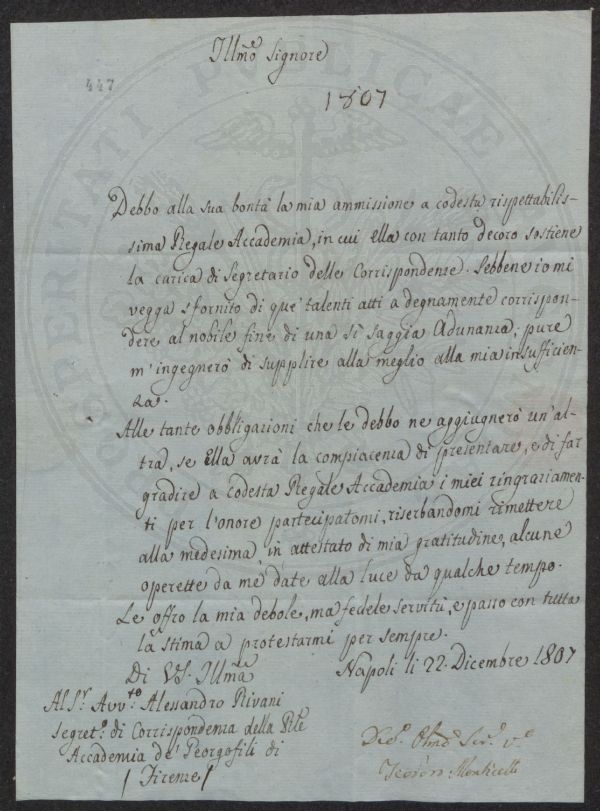 Illmo Signore
447
1807
Debbo alla sua bontà la mia ammissione a codesta rispettabilis-
sima Regale Accademia, in cui ella con tanto decoro sostiene
la carica di Segretario delle Corrispondenze. Sebbene io mi
vegga sfornito di que' talenti atti a degnamente corrispon-
dere al nobile fine di una sì saggia Adunanza; pure
m'ingegnerò di supplire alla meglio alla mia insufficien-
za.
Alle tante obbligazioni che le debbo ne aggiugnerò un'al-
tra, se Ella avrà la compiacenza di presentare, e di far
gradire a codesta Regale Accademia i miei ringraziamen-
ti per l'onore partecipatomi, riserbandomi rimettere
alla medesima, in attestato di mia gratitudine, alcune
operette da me date alla luce da qualche tempo.
Le offro la mia debole, ma fedele servitù, e passo con tutta
la stima a protestarmi per sempre.
Di VS. Illma
Napoli li 22. Dicembre 1807
Al Sr. Avvto. Alessandro Rivani
Segreto. di Corrispondenza della Rle
Accademia de' Georgofili di
/ Firenze /
Devo. Obmo Sere. vo
Teodoro Monticelli
PROSPERITATI PUBLICAE